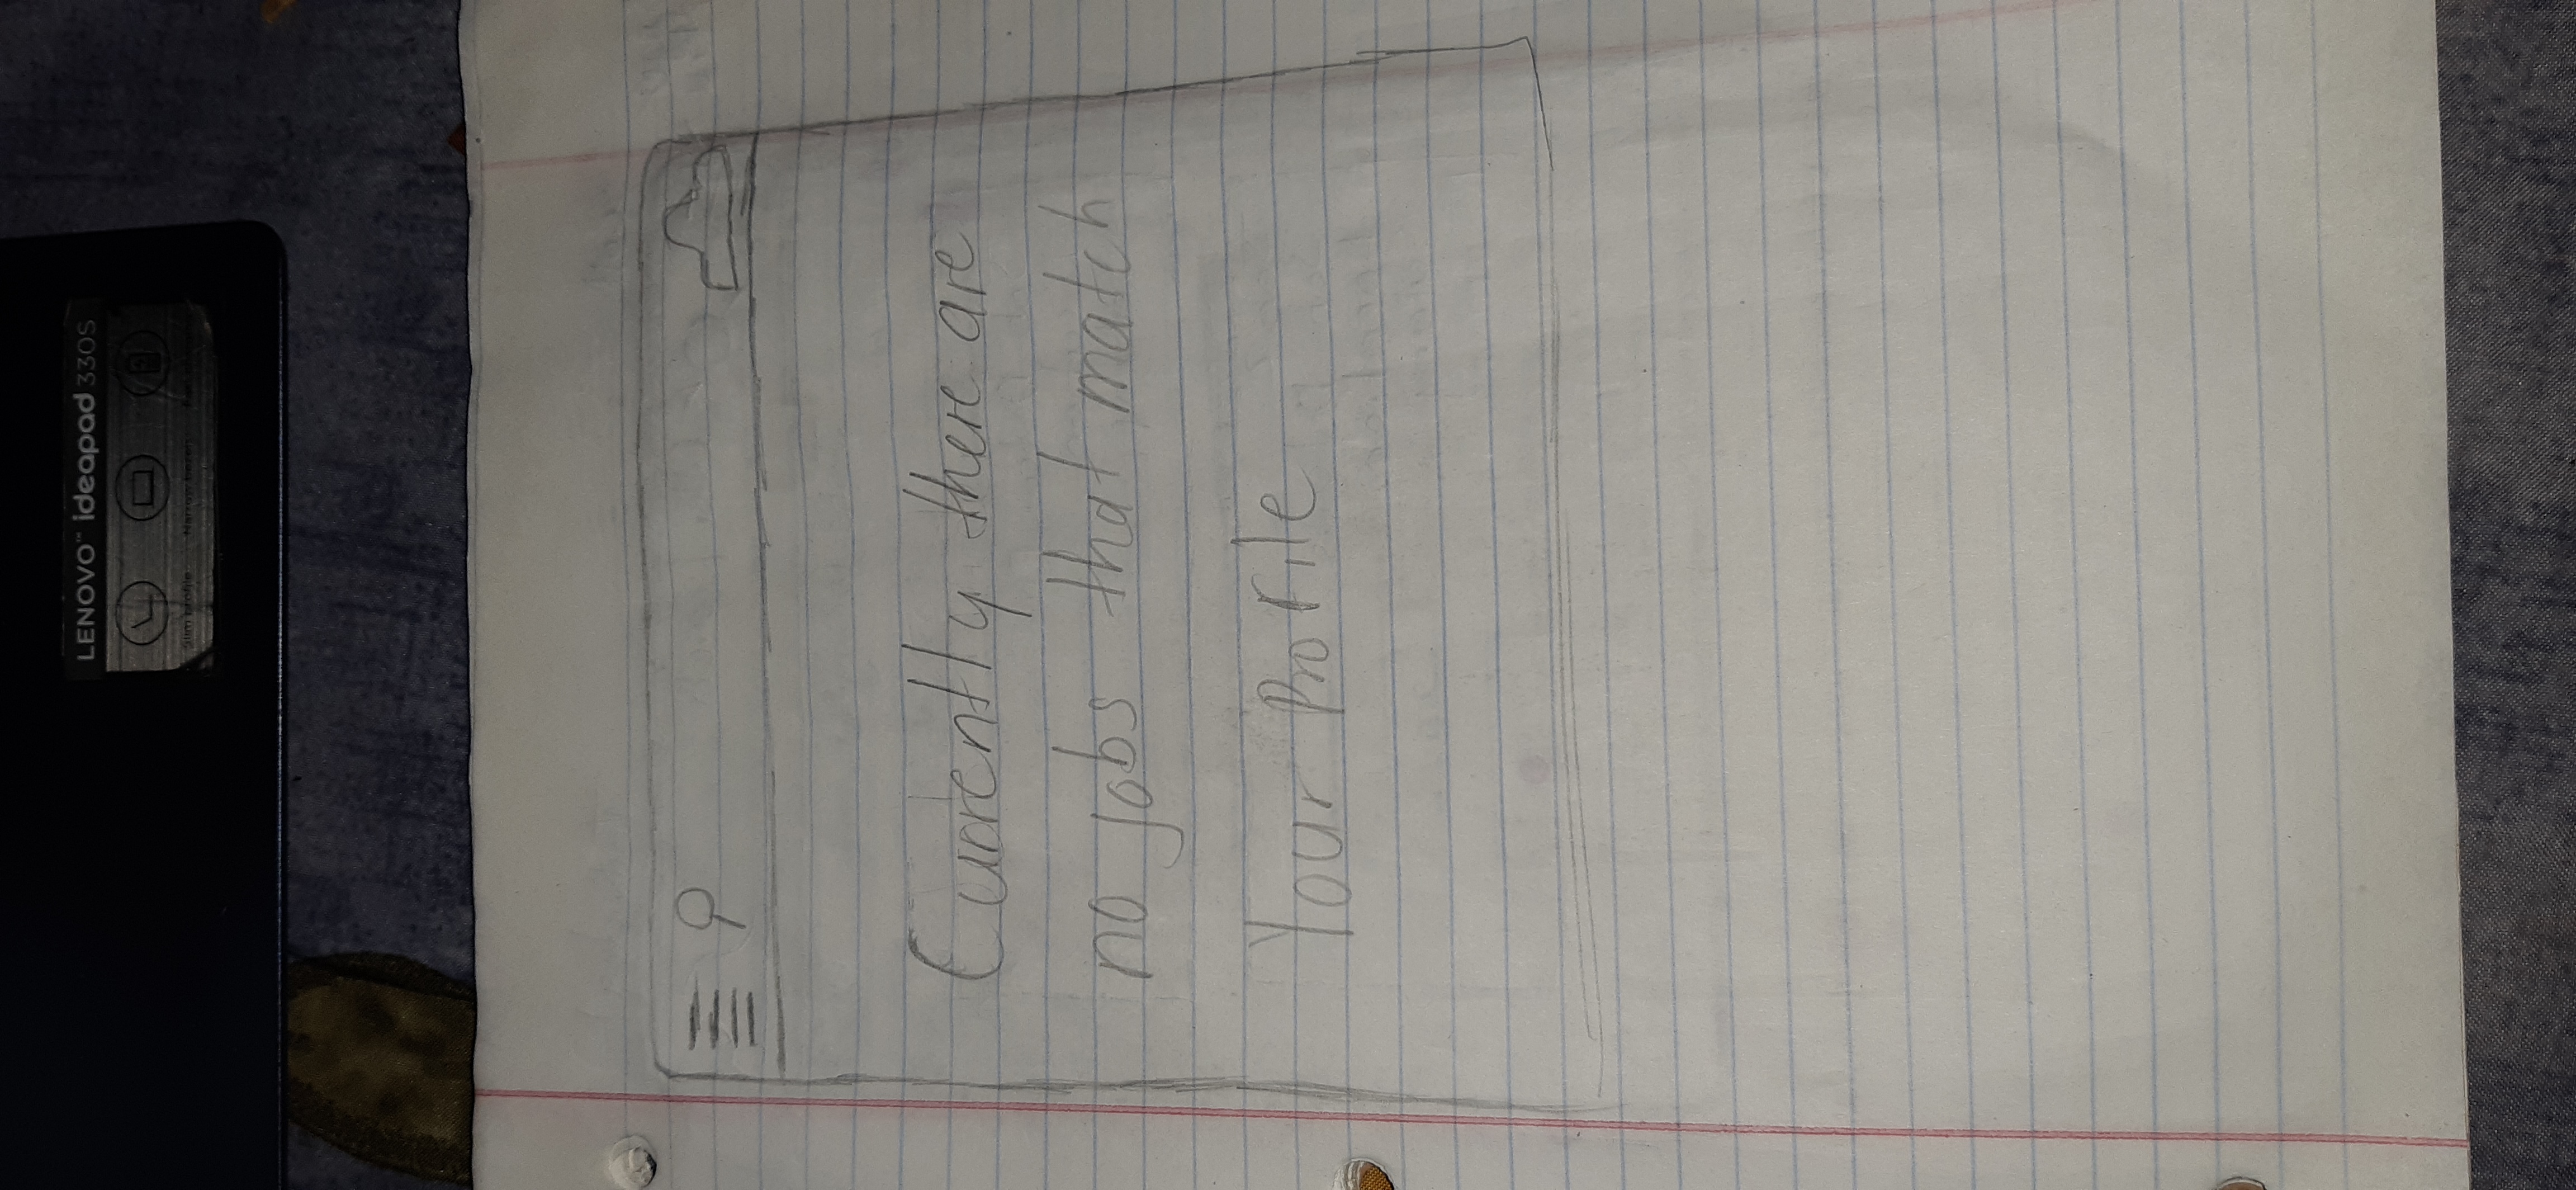 LENOVO™ ideapad 330S
Slim profile Narrow bezels Fast charging
Currently there are
no jobs that match
Your Profile